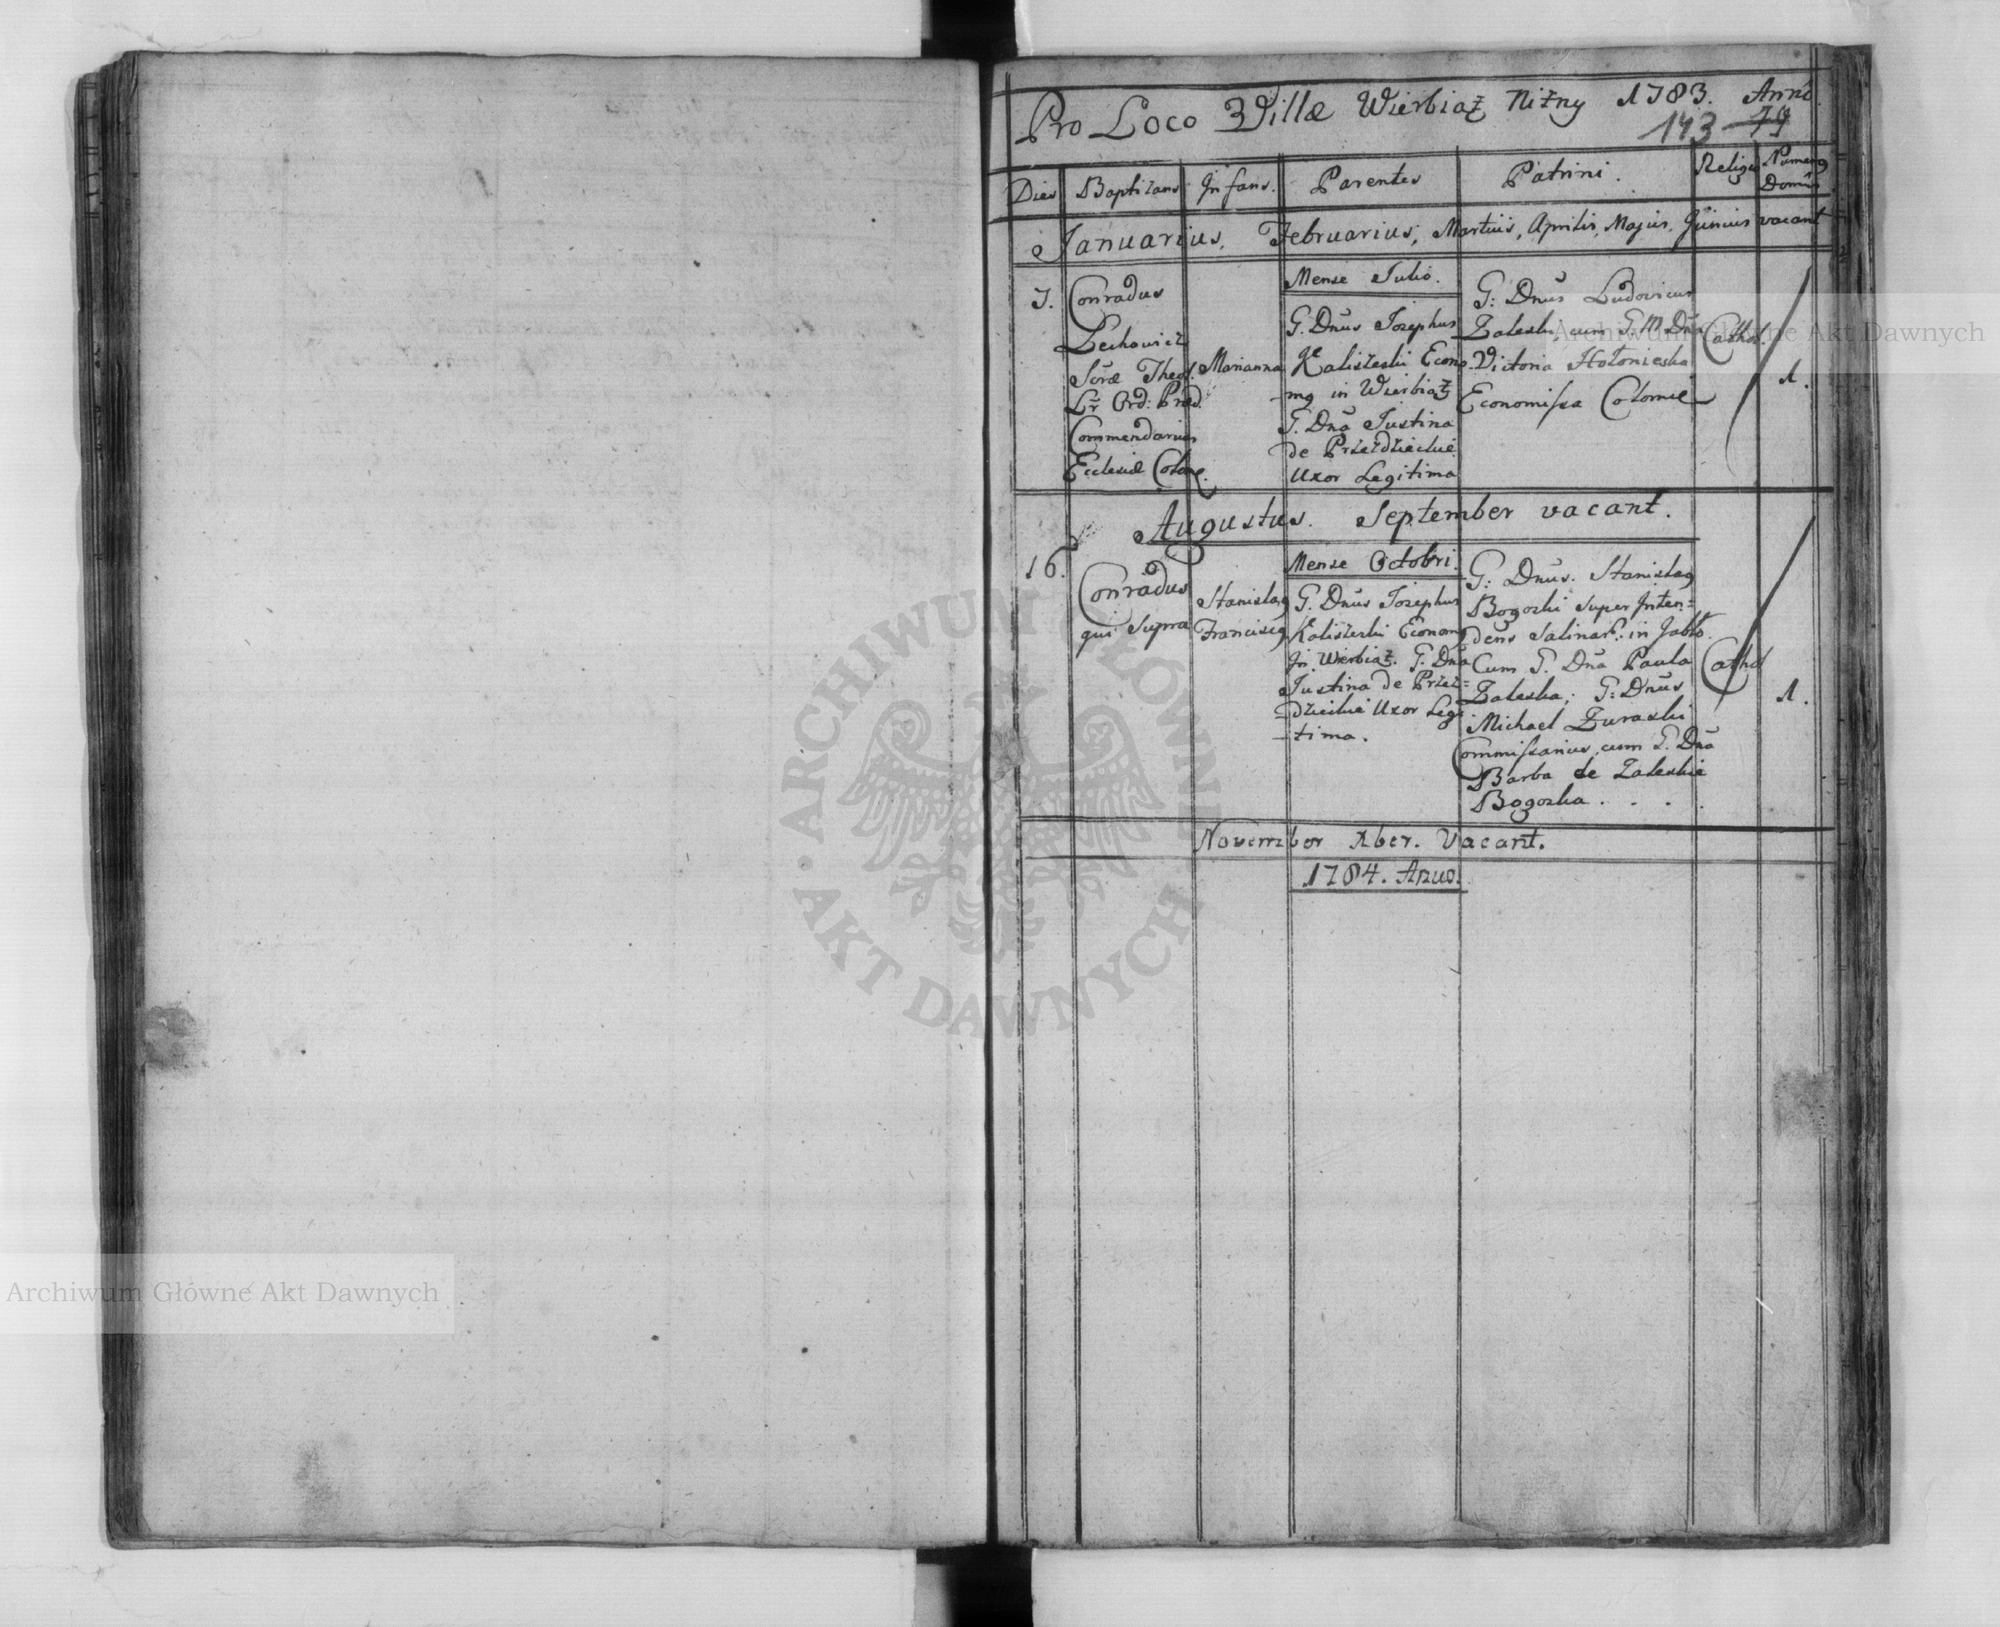 Pro Loco Villæ Wierbiąż Niżny 1783. Anno.
143 79
Dies Baptizans Infans. Parentes Patrini. Religio Numerus Domus
Januarius, Februarius, Martius, Aprilis, Majus, Junius vacant
Mense Julio.
7.
Conradus
Lechowicz
Scræ Theol.
Lr Ord: Præd.
Commendarius
Ecclesiæ Colom.
Marianna
G. Dnus Josephus
Kaliszeski Econo
mg in Wierbiąż
G. Dna Justina
de Przeżdzieckie
Uxor Legitima
G: Dnus Ludovicus
Zaleski cum G. M Dna
Victoria Hołonieska
Economissa Colomie
Cathol
1.
Augustus. September vacant.
Mense Octobri.
16.
Conradus
qui Supra
Stanislaus
Franciscus
G. Dnus Josephus
Kaliszeski Econom
In Wierbiąż. G. Dna
Justina de Przeż=
dzieckie Uxor Legi
tima.
G: Dnus. Stanislaus
Bogoski Super Inten=
dens Salinar: in Jabło.
Cum G. Dna Paula
Zaleska; G: Dnus
Michael Zuraski
Commissarius, cum G. Dna
Barba de Zaleskie
Bogoska . . . .
Cathol
1.
November Xber. Vacant.
1784. Anno.
Archiwum Główne Akt Dawnych
Archiwum Główne Akt Dawnych
ARCHIWUM GŁÓWNE
AKT DAWNYCH